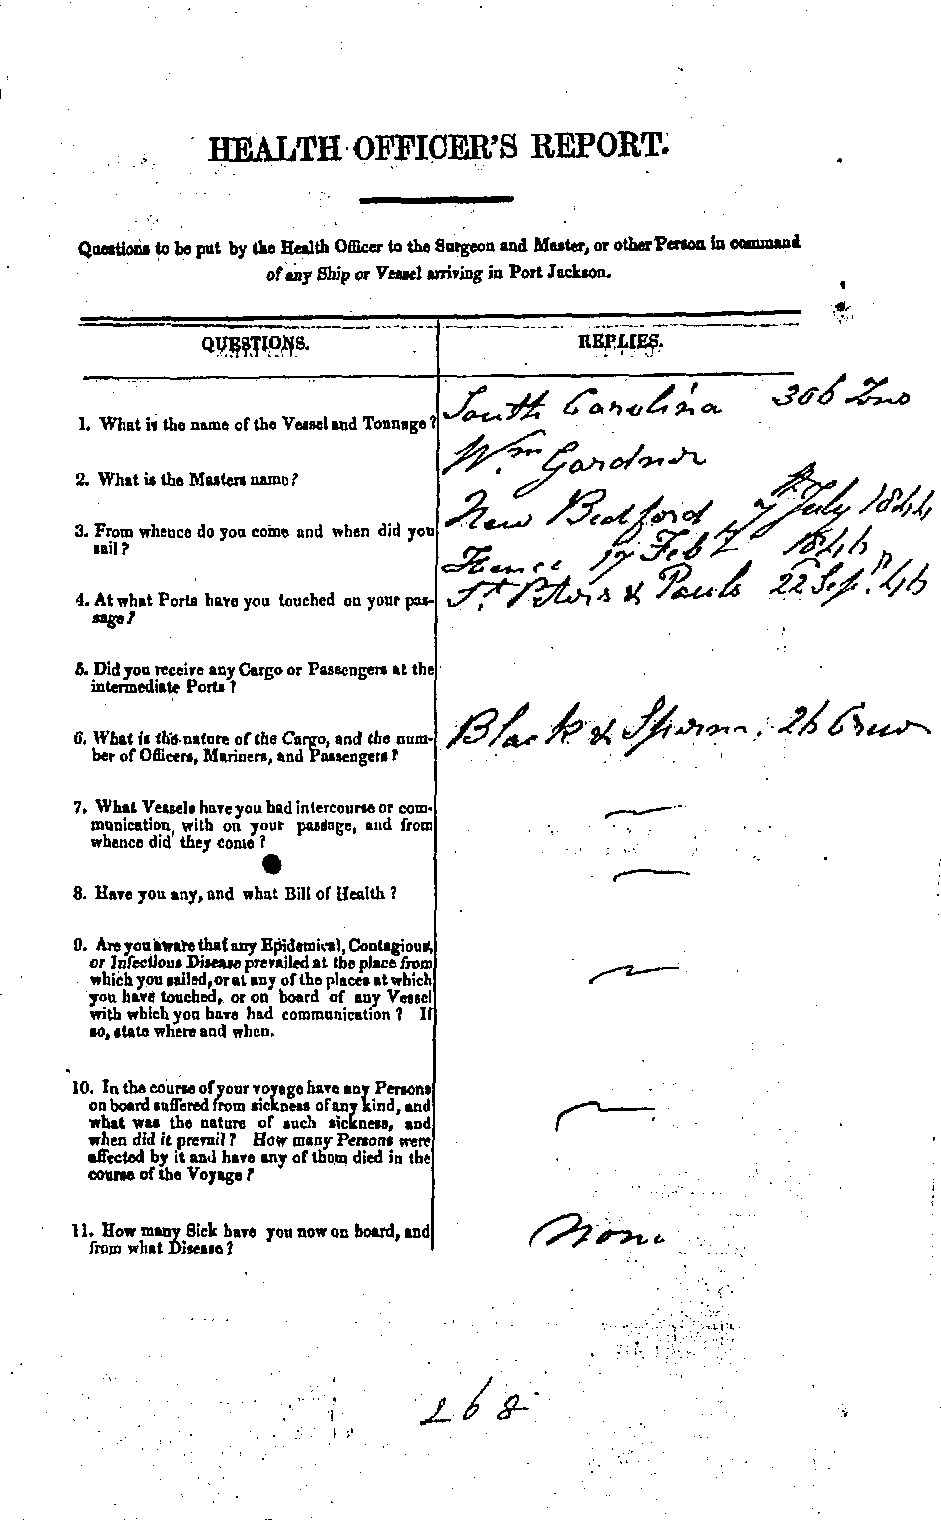 HEALTH OFFICER'S REPORT.
Questions to be put by the Health Officer to the Surgeon and Master, or other Person in command
of any Ship or Vessel arriving in Port Jackson.
QUESTIONS.
REPLIES.
1. What is the name of the Vessel and Tonnage?
South Carolina 306 Tns
2. What is the Masters name?
Wm Gardner
3. From whence do you come and when did you
sail?
New Bedford 7th July 1844
17 Feb 1846
4. At what Ports have you touched on your pas-
sage?
St Peters & Pauls 22 Sepr. 46
5. Did you receive any Cargo or Passengers at the
intermediate Ports?
6. What is the nature of the Cargo, and the num-
ber of Officers, Mariners, and Passengers?
Black & Sperm. 26 Crew
7. What Vessels have you had intercourse or com-
munication, with on your passage, and from
whence did they come?
8. Have you any, and what Bill of Health?
9. Are you aware that any Epidemical, Contagious,
or Infectious Disease prevailed at the place from
which you sailed, or at any of the places at which
you have touched, or on board of any Vessel
with which you have had communication? If
so, state where and when.
10. In the course of your voyage have any Persons
on board suffered from sickness of any kind, and
what was the nature of such sickness, and
when did it prevail? How many Persons were
affected by it and have any of them died in the
course of the Voyage?
11. How many Sick have you now on board, and
from what Disease?
None
268